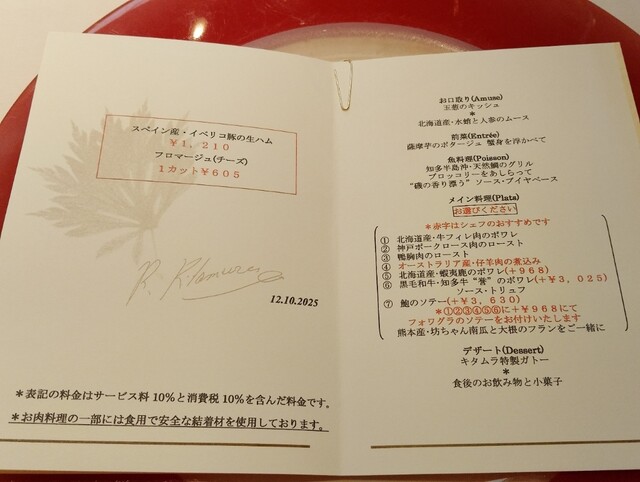 スペイン産・イベリコ豚の生ハム
¥1,210
フロマージュ(チーズ)
1カット¥605
12.10.2025
*表記の料金はサービス料10%と消費税10%を含んだ料金です。
*お肉料理の一部には食用で安全な結着材を使用しております。
お口取り(Amuse)
玉葱のキッシュ
*
北海道産・水蛸と人参のムース
前菜(Entrée)
薩摩芋のポタージュ 蟹身を浮かべて
魚料理(Poisson)
知多半島沖・天然鯛のグリル
ブロッコリーをあしらって
“磯の香り漂う” ソース・ブイヤベース
メイン料理(Plats)
お選びください
*赤字はシェフのおすすめです
① 北海道産・牛フィレ肉のポワレ
② 神戸ポークロース肉のロースト
③ 鴨胸肉のロースト
④ オーストラリア産・仔羊肉の煮込み
⑤ 北海道産・蝦夷鹿のポワレ(+968)
⑥ 黒毛和牛・知多牛“誉”のポワレ(+¥3,025)
ソース・トリュフ
⑦ 鮑のソテー(+¥3,630)
*①②③④⑤⑥に+¥968にて
フォワグラのソテーをお付けいたします
熊本産・坊ちゃん南瓜と大根のフランをご一緒に
デザート(Dessert)
キタムラ特製ガトー
*
食後のお飲み物と小菓子